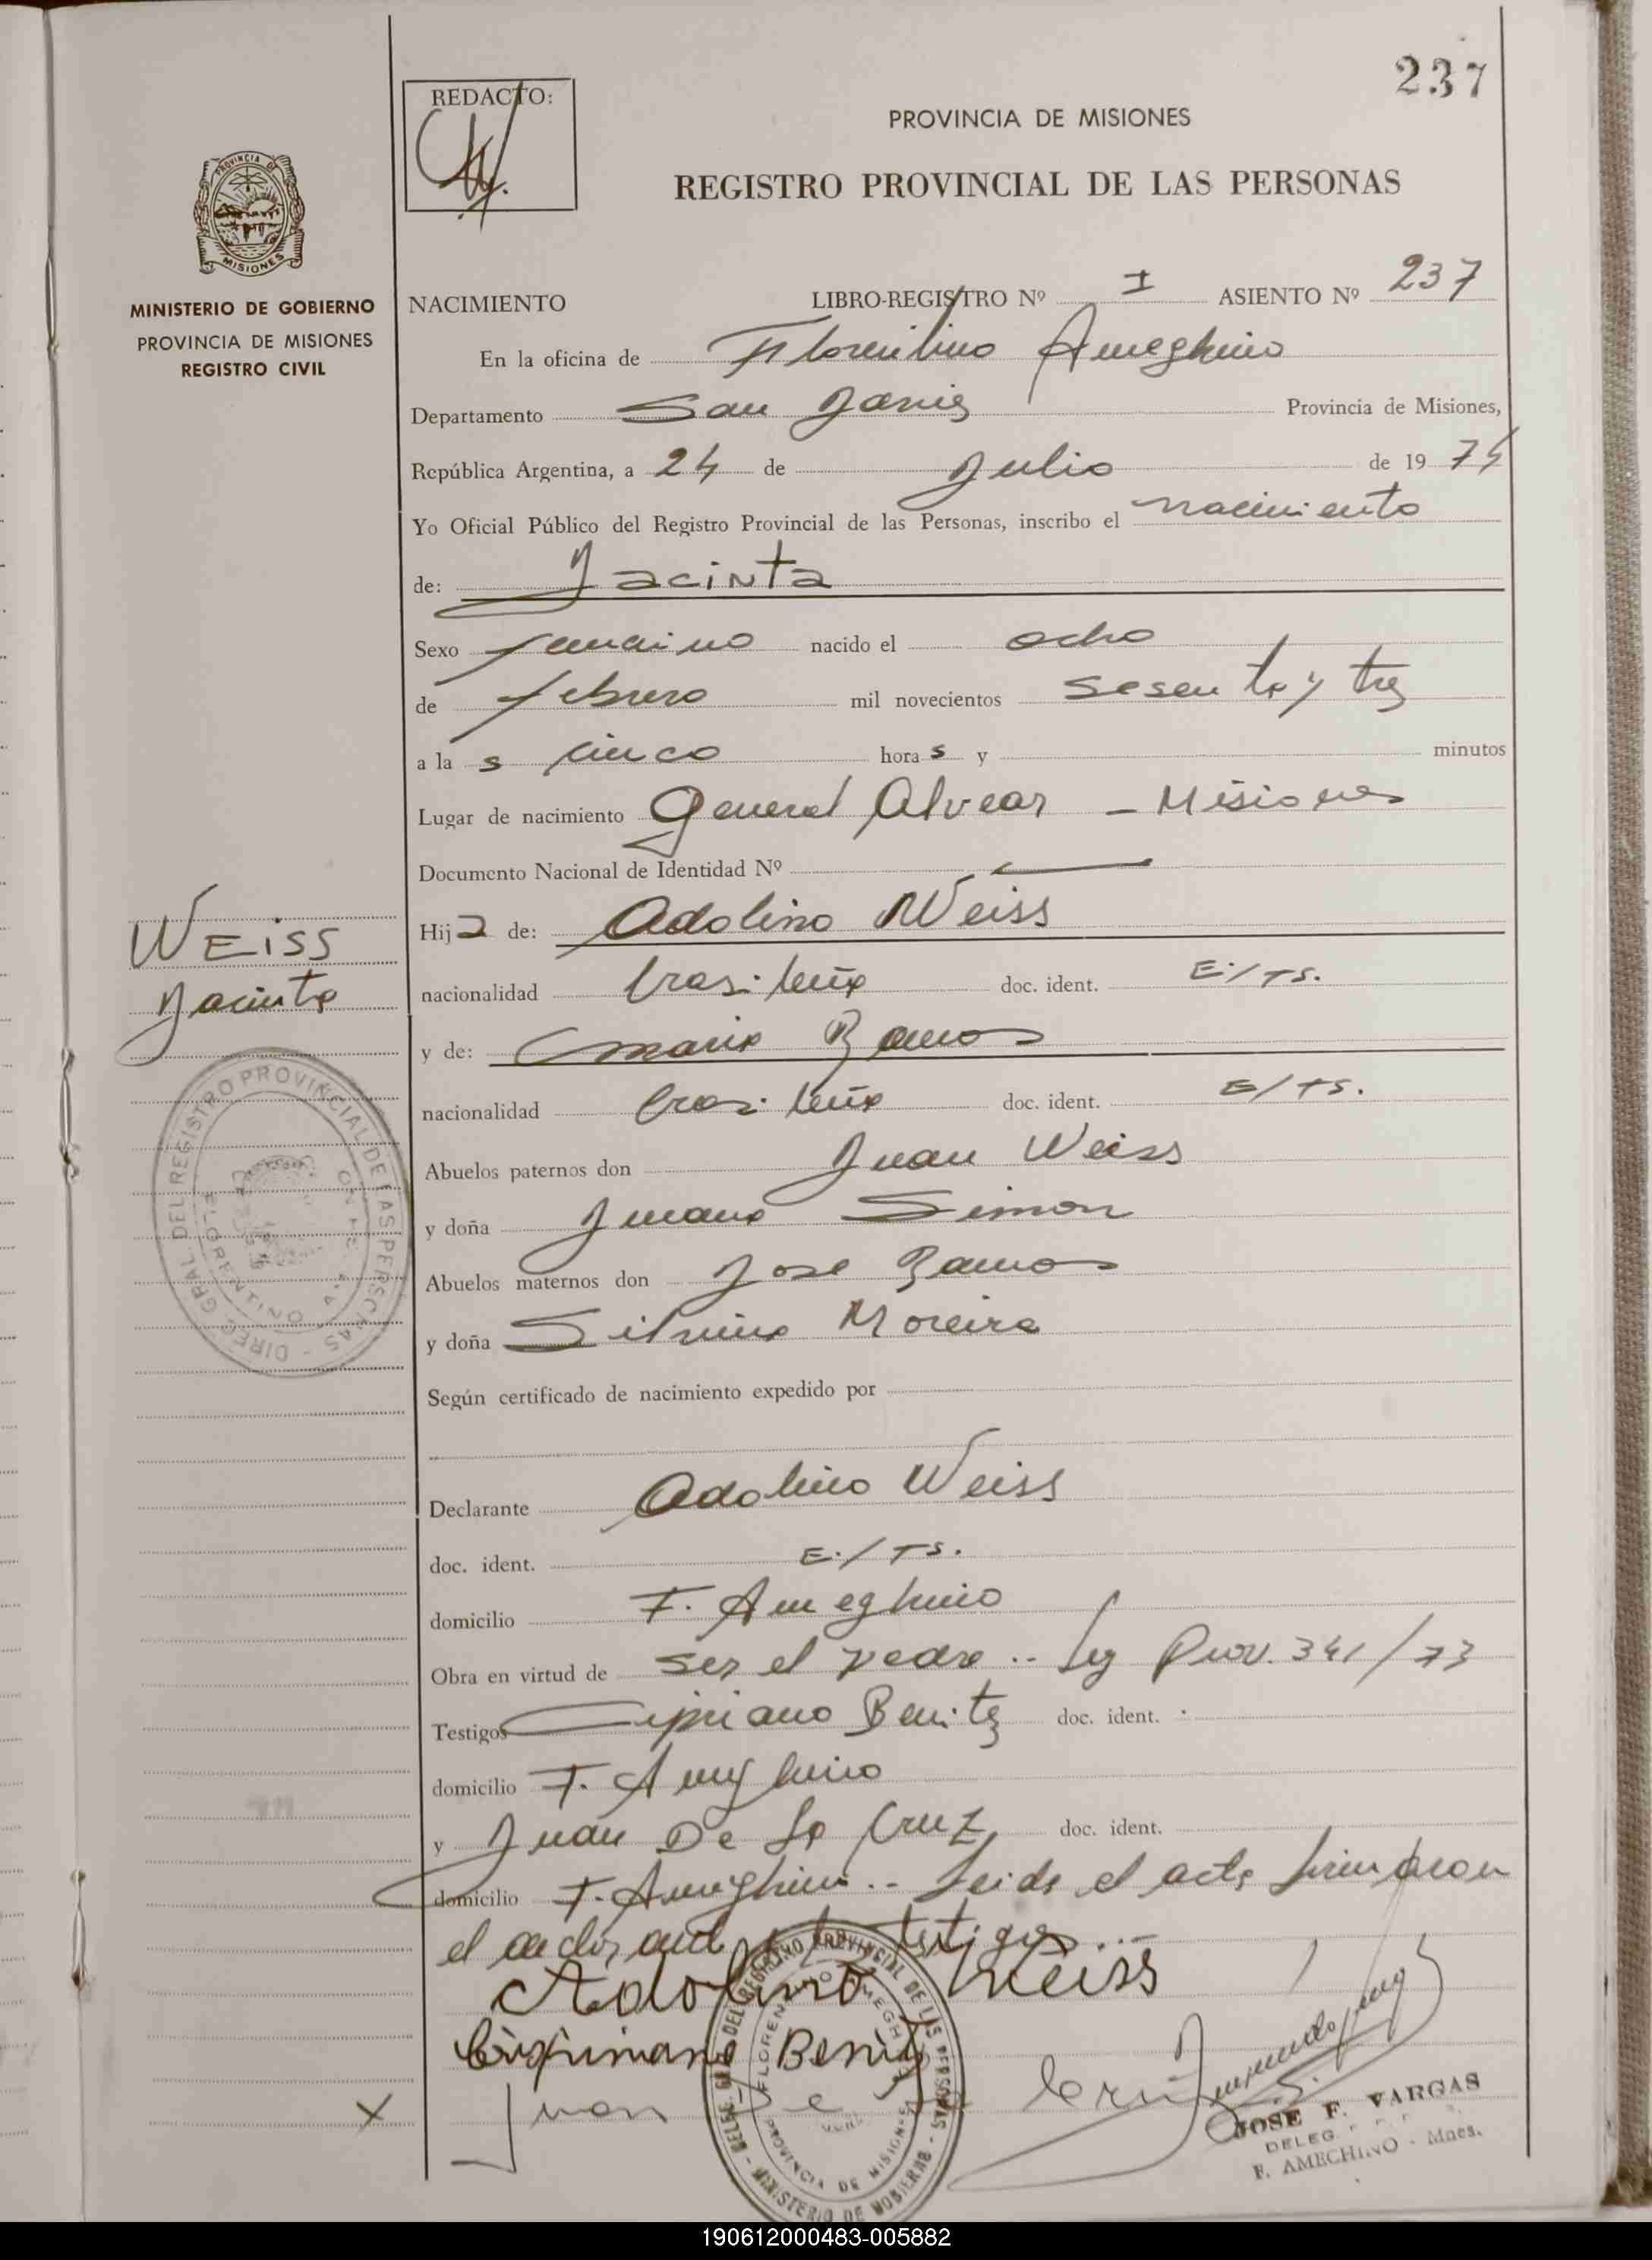 237
REDACTO:
PROVINCIA DE MISIONES
REGISTRO PROVINCIAL DE LAS PERSONAS
PROVINCIA DE
MISIONES
MINISTERIO DE GOBIERNO
PROVINCIA DE MISIONES
REGISTRO CIVIL
NACIMIENTO LIBRO-REGISTRO Nº I ASIENTO Nº 237
En la oficina de Florentino Ameghino
Departamento San Javier Provincia de Misiones,
República Argentina, a 24 de Julio de 1974
Yo Oficial Público del Registro Provincial de las Personas, inscribo el nacimiento
de: Jacinta
Sexo femenino nacido el ocho
de febrero mil novecientos sesenta y tres
a la s cinco hora s y minutos
Lugar de nacimiento General Alvear - Misiones
Documento Nacional de Identidad Nº
WEISS
Jacinta
Hija de: Adolino Weiss
nacionalidad brasileña doc. ident. E./TS.
y de: Maria Ramos
nacionalidad brasileña doc. ident. E/TS.
Abuelos paternos don Juan Weiss
y doña Juana Simon
Abuelos maternos don Jose Ramos
y doña Silvina Moreira
DIREC. GRAL. DEL REGISTRO PROVINCIAL DE LAS PERSONAS
FLORENTINO
Según certificado de nacimiento expedido por
Declarante Adolino Weiss
doc. ident. E./TS.
domicilio F. Ameghino
Obra en virtud de ser el padre .. Ley Prov. 341/73
Testigos Cipriano Benitez doc. ident.
domicilio F. Ameghino
y Juan De La Cruz, doc. ident.
domicilio F. Ameghino.. Leida el acta firmaron
el declarante y testigos...
Adolino Weiss
Benitez
Juan De la Cruz
FLORENTINO AMEGHINO
PROVINCIA DE MISIONES
MINISTERIO DE GOBIERNO
DEL REGISTRO PROVINCIAL DE LAS PERSONAS
JOSE F. VARGAS
DELEG
F. AMEGHINO - Mnes.
190612000483-005882